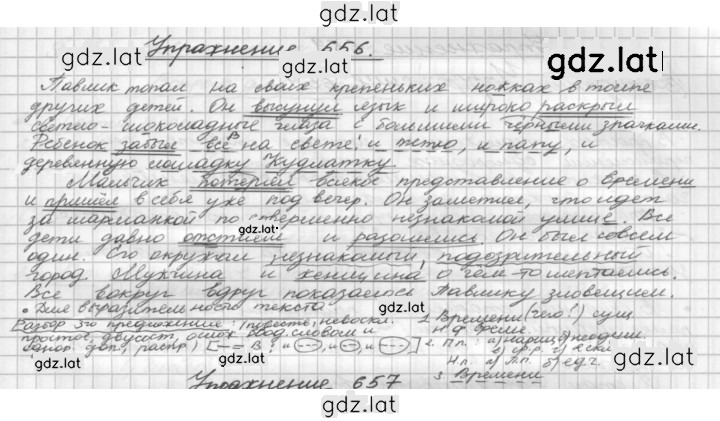 gdz.lat
Упражнение 556.
gdz.lat
gdz.lat
gdz.lat
Павлик топал на своих крепеньких ножках в толпе
других детей. Он высунул язык и широко раскрыл
светло-шоколадные глаза с большими чёрными зрачками.
Ребёнок забыл всё на свете: и тётю, и папу, и
деревянную лошадку Кудлатку.
Мальчик потерял всякое представление о времени
и пришёл в себя уже под вечер. Он заметил, что идет
за шарманкой по совершенно незнакомой улице. Все
gdz.lat
дети давно отстали и разошлись. Он был совсем
один. Его окружал незнакомый, подозрительный
город. Мужчина и женщина о чём-то шептались.
Всё вокруг вдруг показалось Павлику зловещим.
• Для выразительности текста.
gdz.lat
Разбор 3го предложения (повеств., невоскл.
простое, двусост., ослож.
однор. доп., распр.)
1. Времени (чего?) сущ.
Н.ф. время
2. П.п.: а) нариц. б) неодуш.
в) ср.р.
Н.п. а) П.п. б) ед.ч.
3. Времени
gdz.lat
Упражнение 657
gdz.lat